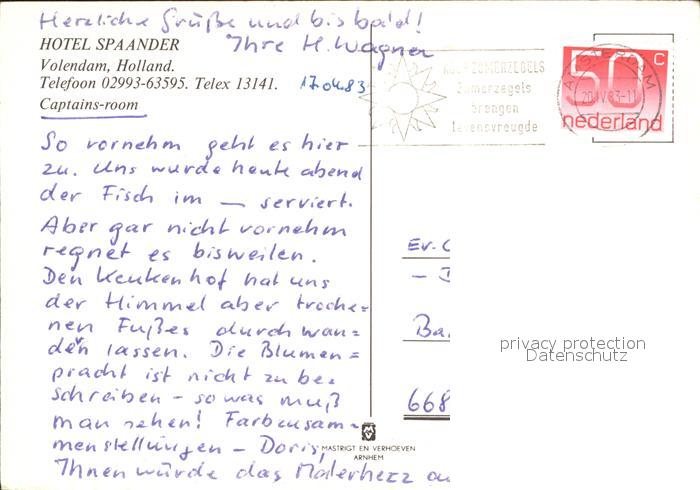 Herzliche Grüße und bis bald!
Ihre H. Wagner
HOTEL SPAANDER
Volendam, Holland.
Telefoon 02993-63595. Telex 13141.
Captains-room
17.04.83
So vornehm geht es hier
zu. Uns wurde heute abend
der Fisch im — serviert.
Aber gar nicht vornehm
regnet es bisweilen.
Den Keukenhof hat uns
der Himmel aber trocke=
nen Fußes durchwan=
deln lassen. Die Blumen=
pracht ist nicht zu be=
schreiben - so was muß
man sehen! Farbzusam-
menstellungen - Doris,
Ihnen würde das Malerherz
KOOP ZOMERZEGELS
Zomerzegels
brengen
levensvreugde
AMSTERDAM
20.IV.83-11
50 c
nederland
Ev.
Ba
668
privacy protection
Datenschutz
MASTRIGT EN VERHOEVEN
ARNHEM